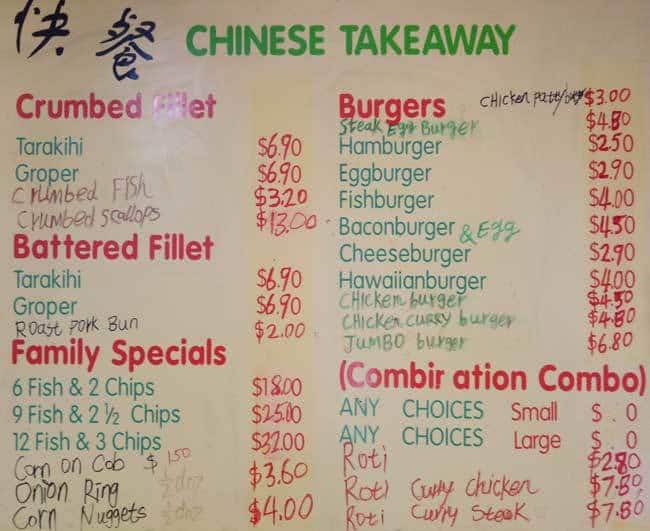 快餐 CHINESE TAKEAWAY
Crumbed Fillet
Tarakihi $6.90
Groper $6.90
Crumbed Fish $3.20
Crumbed Scallops $13.00
Battered Fillet
Tarakihi $6.90
Groper $6.90
Roast Pork Bun $2.00
Family Specials
6 Fish & 2 Chips $18.00
9 Fish & 2½ Chips $25.00
12 Fish & 3 Chips $32.00
Corn on Cob $1.50
Onion Ring ½ doz $3.60
Corn Nuggets ½ doz $4.00
Burgers Chicken Patty $3.00
Steak Egg Burger $4.80
Hamburger $2.50
Eggburger $2.90
Fishburger $4.00
Baconburger & Egg $4.50
Cheeseburger $2.90
Hawaiianburger $4.00
Chicken burger $4.50
Chicken Curry burger $4.80
JUMBO burger $6.80
(Combir ation Combo)
ANY CHOICES Small $ . 0
ANY CHOICES Large $ . 0
Roti $2.80
Roti Curry chicken $7.80
Roti Curry Steak $7.80